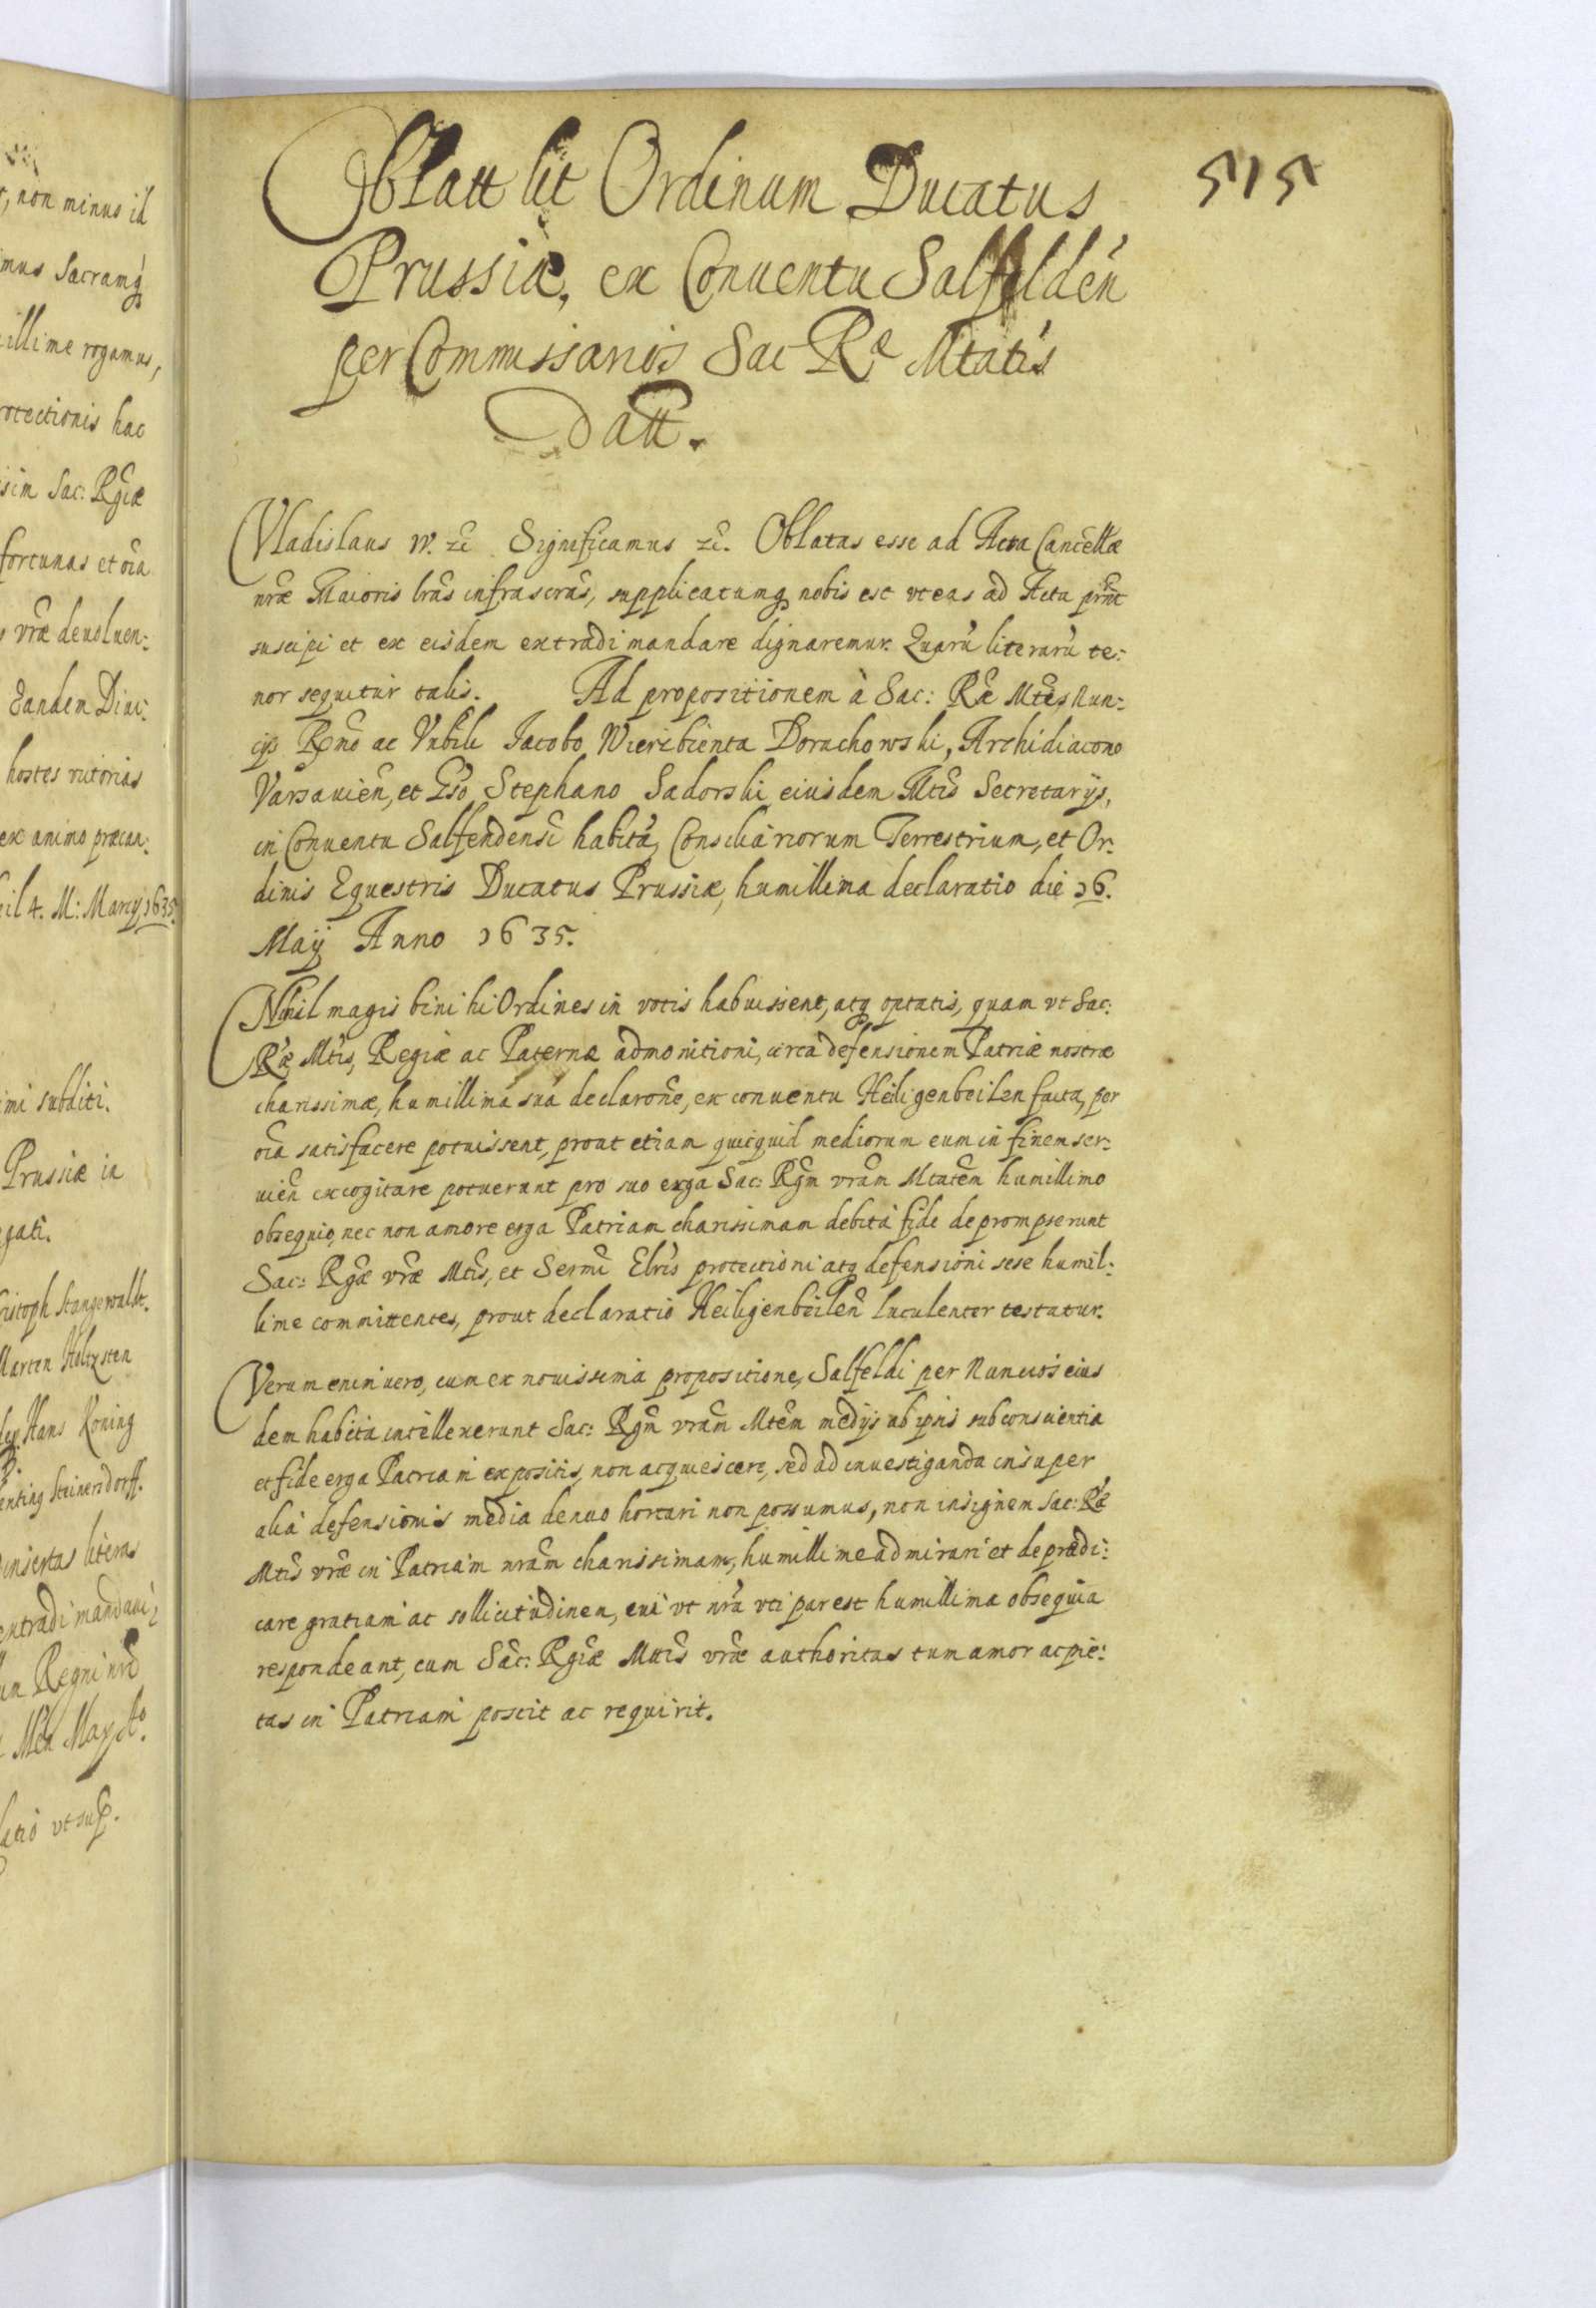 515
Oblatt lit Ordinum Ducatus
Prussiæ, ex Conuentu Salfelden̄
per Commissarios Sac Re Mtatis
Datt.
Vladislaus IV. etc̄ Significamus etc̄. Oblatas esse ad Acta Cancellæ
nr̄æ Maioris lrās infrascrās, supplicatumq nobis est vt eas ad Acta prn̄t
suscipi et ex eisdem extradi mandare dignaremur. Quarū literarū te:
nor sequitur talis. Ad propositionem à Sac: Ræ Mtis Nun:
cijs Rn̄do ac Vnbili Iacobo Wierzbienta Doruchowski, Archidiacono
Varsauien̄, et Gso Stephano Sadorski eiusdem Mtis Secretarijs,
in Conuentu Salfendensi habitâ, Consiliariorum Terrestrium, et Or:
dinis Equestris Ducatus Prussiæ, humillima declaratio die 16.
Maij Anno 1635.
Nihil magis bini hi Ordines in votis habuissent, atq optatis, quam vt Sac:
Ræ Mtis, Regiæ ac Paternæ admonitioni, circa defensionem Patriæ nostræ
charissimæ, humillimâ suâ declarōne, ex conuentu Heiligenbeilen facta, per
oīa satisfacere potuissent, prout etiam quicquid mediorum eum in finem ser:
uien̄ excogitare potuerunt pro suo erga Sac: Rgm̄ vrām Mtatem humillimo
obsequio, nec non amore erga Patriam charissimam debitâ fide deprompserunt
Sac: Rgæ vr̄æ Mtis, et Sermi Elris protectioni atq defensioni sese humil:
lime committentes, prout declaratio Heiligenbeilen̄ luculenter testatur.
Verum enimuero, cum ex nouissimâ propositione, Salfeldi per Nuncios eius
dem habita intellexerunt Sac: Rgm̄ vrām Mtem medijs ab ipsis sub consuientia
et fide erga Patriam expositis, non acquiescere, sed ad inuestiganda insuper
alia defensionis media denuo hortari non possumus, non insignem Sac: Ræ
Mtis vr̄æ in Patriam nrām charissimam, humillime admirari et deprædi:
care gratiam ac sollicitudinem, cui vt nrā vti par est humillima obsequia
respondeant, cum Sac: Rgiæ Mttis vr̄æ authoritas tum amor ac pie:
tas in Patriam poscit ac requirit.